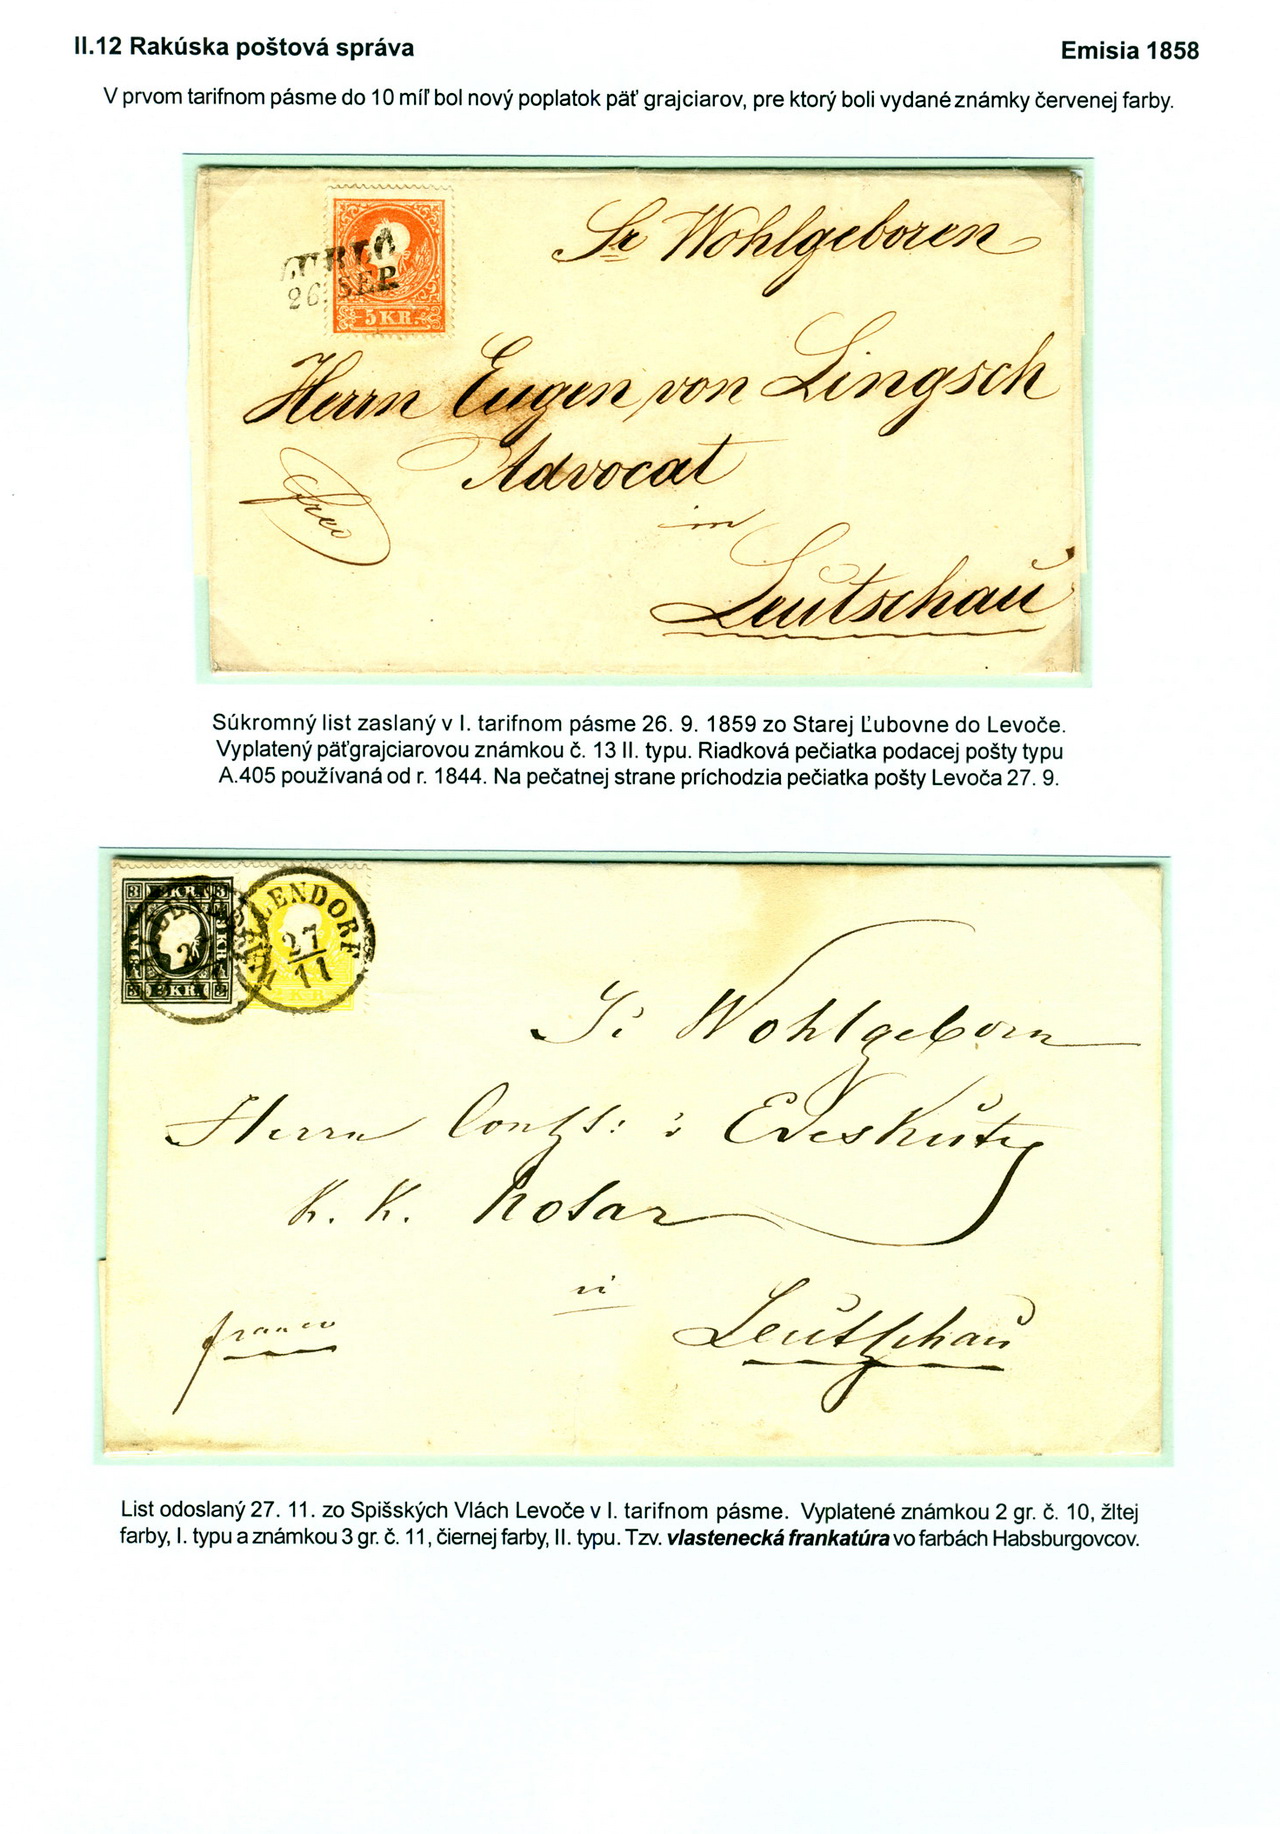 II.12 Rakúska poštová správa
Emisia 1858
V prvom tarifnom pásme do 10 míľ bol nový poplatok päť grajciarov, pre ktorý boli vydané známky červenej farby.
26. SEP.
5 KR.
Sr Wohlgeboren
Herrn Eugen von Lingsch
Advocat
in
Leutschau
Súkromný list zaslaný v I. tarifnom pásme 26. 9. 1859 zo Starej Ľubovne do Levoče.
Vyplatený päťgrajciarovou známkou č. 13 II. typu. Riadková pečiatka podacej pošty typu
A.405 používaná od r. 1844. Na pečatnej strane príchodzia pečiatka pošty Levoča 27. 9.
3 KR. 3
WALLENDORF
27/11
Sr Wohlgeborn
Herrn
K. K.
in
franco
Leutschau
List odoslaný 27. 11. zo Spišských Vlách Levoče v I. tarifnom pásme. Vyplatené známkou 2 gr. č. 10, žltej
farby, I. typu a známkou 3 gr. č. 11, čiernej farby, II. typu. Tzv. vlastenecká frankatúra vo farbách Habsburgovcov.